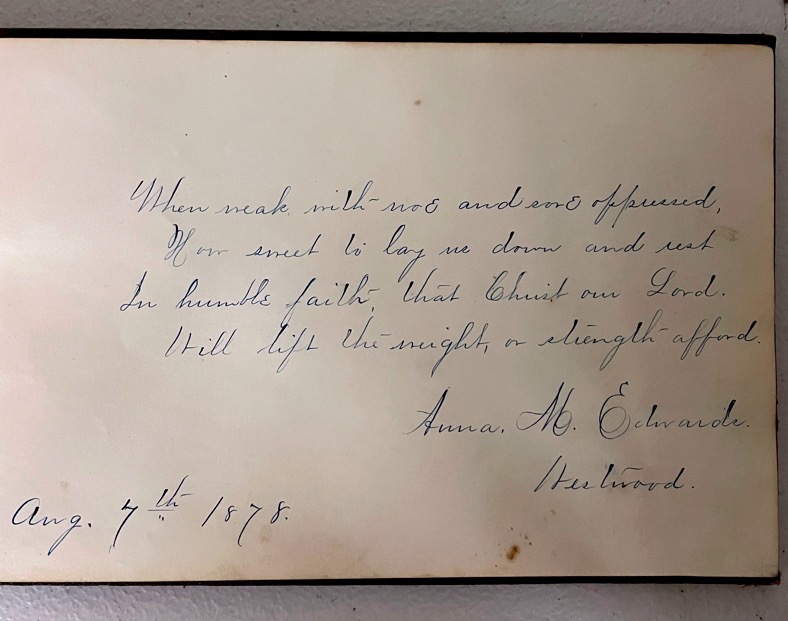 When weak with woe and sore oppressed,
How sweet to lay us down and rest
In humble faith, that Christ our Lord.
Will lift the weight, or strength afford.
Anna. M. Edwards.
Westwood.
Aug. 7th 1878.